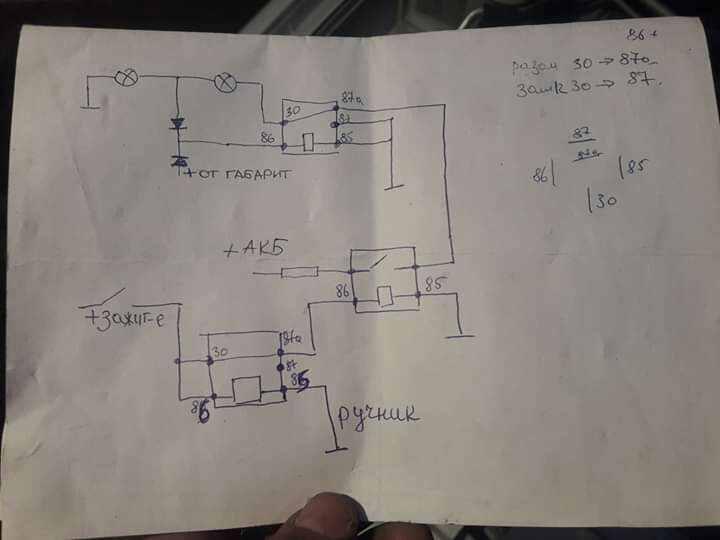 86+
разом 30 → 87a
замк 30 → 87.
87
87a
86
85
30
30
87a
87
86
85
+ОТ ГАБАРИТ
+АКБ
86
85
+Зажиг-е
30
87a
87
86
85
ручник